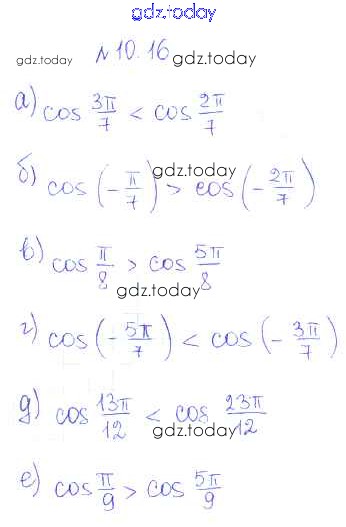 gdz.today
gdz.today №10.16 gdz.today
а) cos 3π/7 < cos 2π/7
gdz.today
б) cos (-π/7) > cos (-2π/7)
в) cos π/8 > cos 5π/8
gdz.today
г) cos (-5π/7) < cos (-3π/7)
д) cos 13π/12 < cos 23π/12
gdz.today
е) cos π/9 > cos 5π/9